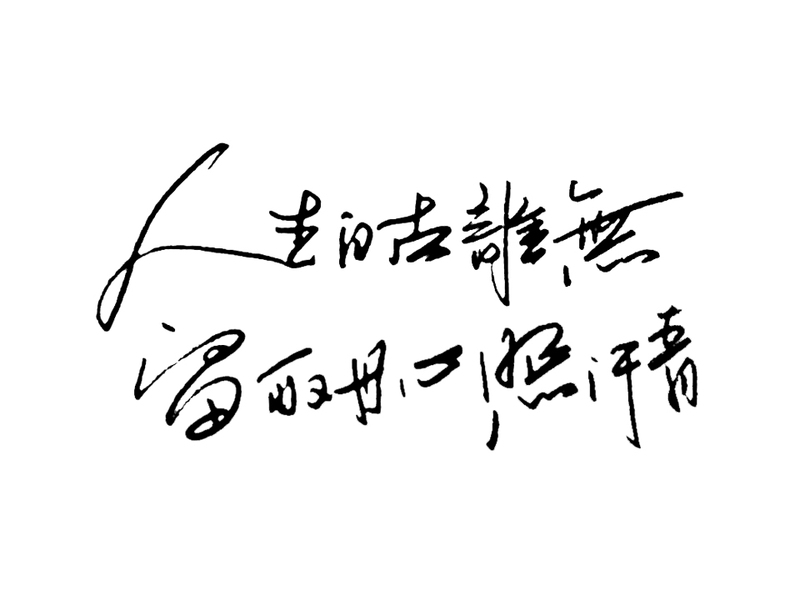 人生自古誰無
留取丹心照汗青